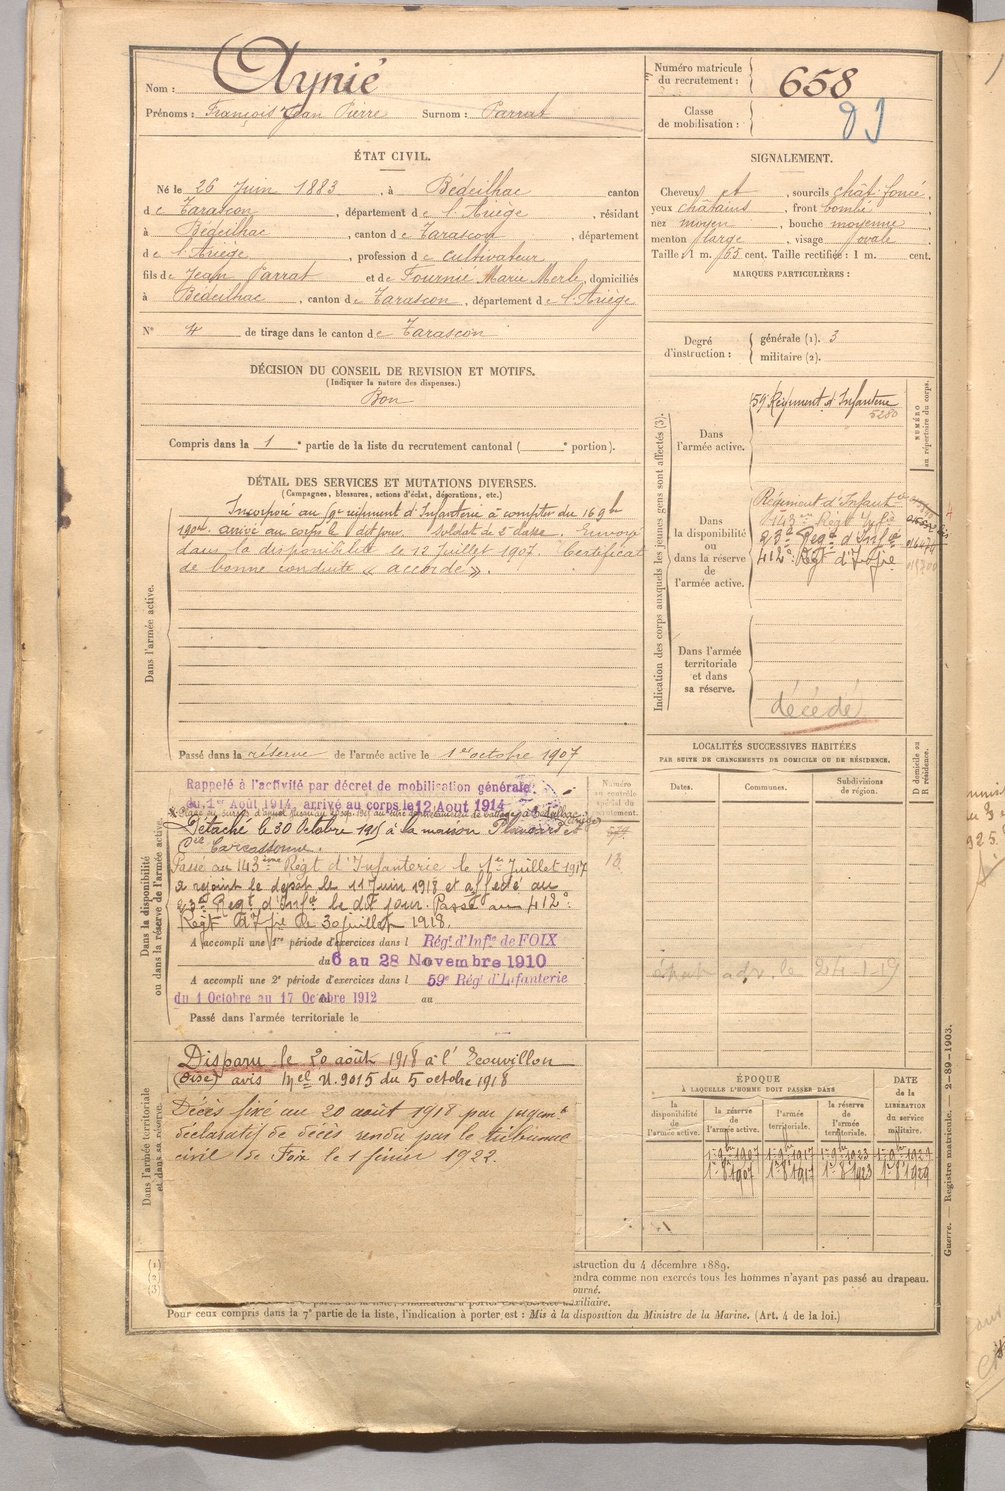 Nom : Aynié
Prénoms : François Jean Pierre Surnom : Parrat
Numéro matricule du recrutement : 658
Classe de mobilisation :
ÉTAT CIVIL.
Né le 26 Juin 1883, à Bédeilhac canton
de Tarascon, département de l'Ariège, résidant
à Bédeilhac, canton de Tarascon, département
de l'Ariège, profession de cultivateur
fils de Jean Parrat et de Fournié Marie Merle, domiciliés
à Bédeilhac, canton de Tarascon, département de l'Ariège
N° 4 de tirage dans le canton de Tarascon
SIGNALEMENT.
Cheveux et, sourcils chât. foncé,
yeux châtains, front bombé,
nez moyen, bouche moyenne,
menton large, visage ovale.
Taille : 1 m. 65 cent. Taille rectifiée : 1 m. cent.
MARQUES PARTICULIÈRES :
Degré d'instruction : générale (1). 3
militaire (2).
DÉCISION DU CONSEIL DE REVISION ET MOTIFS.
(Indiquer la nature des dispenses.)
Bon
Compris dans la 1e partie de la liste du recrutement cantonal ( e portion).
DÉTAIL DES SERVICES ET MUTATIONS DIVERSES.
(Campagnes, blessures, actions d'éclat, décorations, etc.)
Dans l'armée active.
Incorporé au régiment d'Infanterie à compter du 16 9bre
1904. arrivé au corps le dit jour. soldat de 2e classe. Envoyé
dans la disponibilité le 12 Juillet 1907. Certificat
de bonne conduite « accordé ».
Passé dans la réserve de l'armée active le 1er octobre 1907
Dans la disponibilité ou dans la réserve de l'armée active.
Rappelé à l'activité par décret de mobilisation générale
du 1er Août 1914, arrivé au corps le 12 Août 1914
Détaché le 30 Octobre à la maison
Cie Carcassonne.
Passé au 143ème Régt d'Infanterie le 1er Juillet 1917
a rejoint le dépôt le 11 Juin 1918 et affecté au
23e Régt d'Infie le dit jour. Passé au 412e
Régt d'Infie le 30 juillet 1918.
A accompli une 1re période d'exercices dans l Régt d'Infie de FOIX
du 6 au 28 Novembre 1910
A accompli une 2e période d'exercices dans l 59e Régt d'Infanterie
du 1 Octobre au 17 Octobre 1912 au
Passé dans l'armée territoriale le
Dans l'armée territoriale et dans sa réserve.
Disparu le 20 août 1918 à l'Ecouvillon
(Oise) avis Mel N. 9015 du 5 octobre 1918
Décès fixé au 20 août 1918 par jugemt
déclaratif de décès rendu par le tribunal
civil de Foix le 1 février 1922.
Indication des corps auxquels les jeunes gens sont affectés (3).
Dans l'armée active.
59e Régiment d'Infanterie
5280
NUMÉRO au répertoire du corps.
Dans la disponibilité ou dans la réserve de l'armée active.
Régiment d'Infanterie
143e Régt d'Infie
23e Régt d'Infie
412e Régt d'Infie
Dans l'armée territoriale et dans sa réserve.
décédé
LOCALITÉS SUCCESSIVES HABITÉES
PAR SUITE DE CHANGEMENTS DE DOMICILE OU DE RÉSIDENCE.
Dates. Communes. Subdivisions de région. D domicile ou R résidence.
ÉPOQUE
À LAQUELLE L'HOMME DOIT PASSER DANS
DATE de la LIBÉRATION du service militaire.
la disponibilité de l'armée active. la réserve de l'armée active. l'armée territoriale. la réserve de l'armée territoriale.
1er 8bre 1907 1er 8bre 1917 1er 8bre 1923 1er 8bre 1929
struction du 4 décembre 1889.
ndra comme non exercés tous les hommes n'ayant pas passé au drapeau.
ourné.
uxiliaire.
Pour ceux compris dans la 7e partie de la liste, l'indication à porter est : Mis à la disposition du Ministre de la Marine. (Art. 4 de la loi.)
Guerre. — Registre matricule. — 2-89-1903.